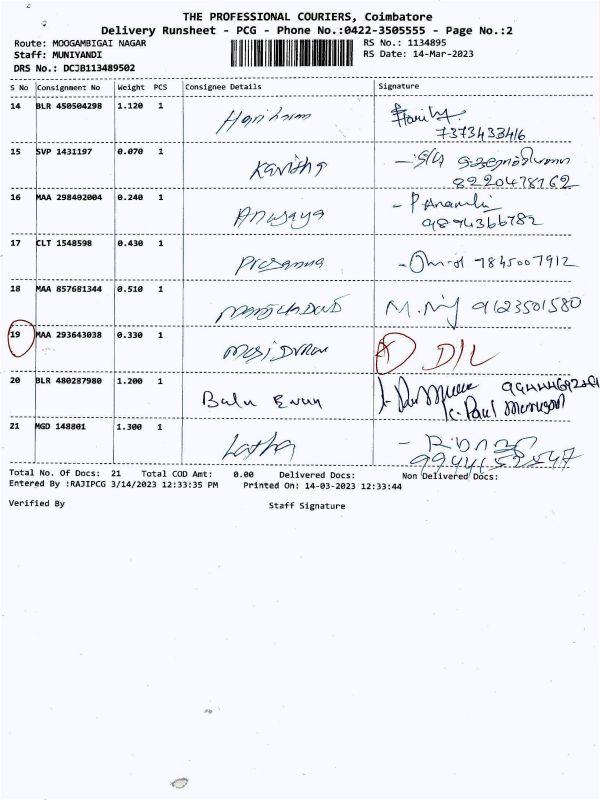 THE PROFESSIONAL COURIERS, Coimbatore
Delivery Runsheet - PCG - Phone No.:0422-3505555 - Page No.:2
Route: MOOGAMBIGAI NAGAR RS No.: 1134895
Staff: MUNIYANDI RS Date: 14-Mar-2023
DRS No.: DCJB113489502
S No Consignment No Weight PCS Consignee Details Signature
14 BLR 450504298 1.120 1 Hariharan
7373433416
15 SVP 1431197 0.070 1 Kavitha
8220478762
16 MAA 298402004 0.240 1 Anusaya
9894366782
17 CLT 1548598 0.430 1 Prasanna 7845007912
18 MAA 857681344 0.510 1 9123501580
19 MAA 293643038 0.330 1 D/L
20 BLR 480287980 1.200 1 Balu
K. Paul Murugan
21 MGD 148801 1.300 1 Latha
Total No. Of Docs: 21 Total COD Amt: 0.00 Delivered Docs: Non Delivered Docs:
Entered By :RAJIPCG 3/14/2023 12:33:35 PM Printed On: 14-03-2023 12:33:44
Verified By Staff Signature